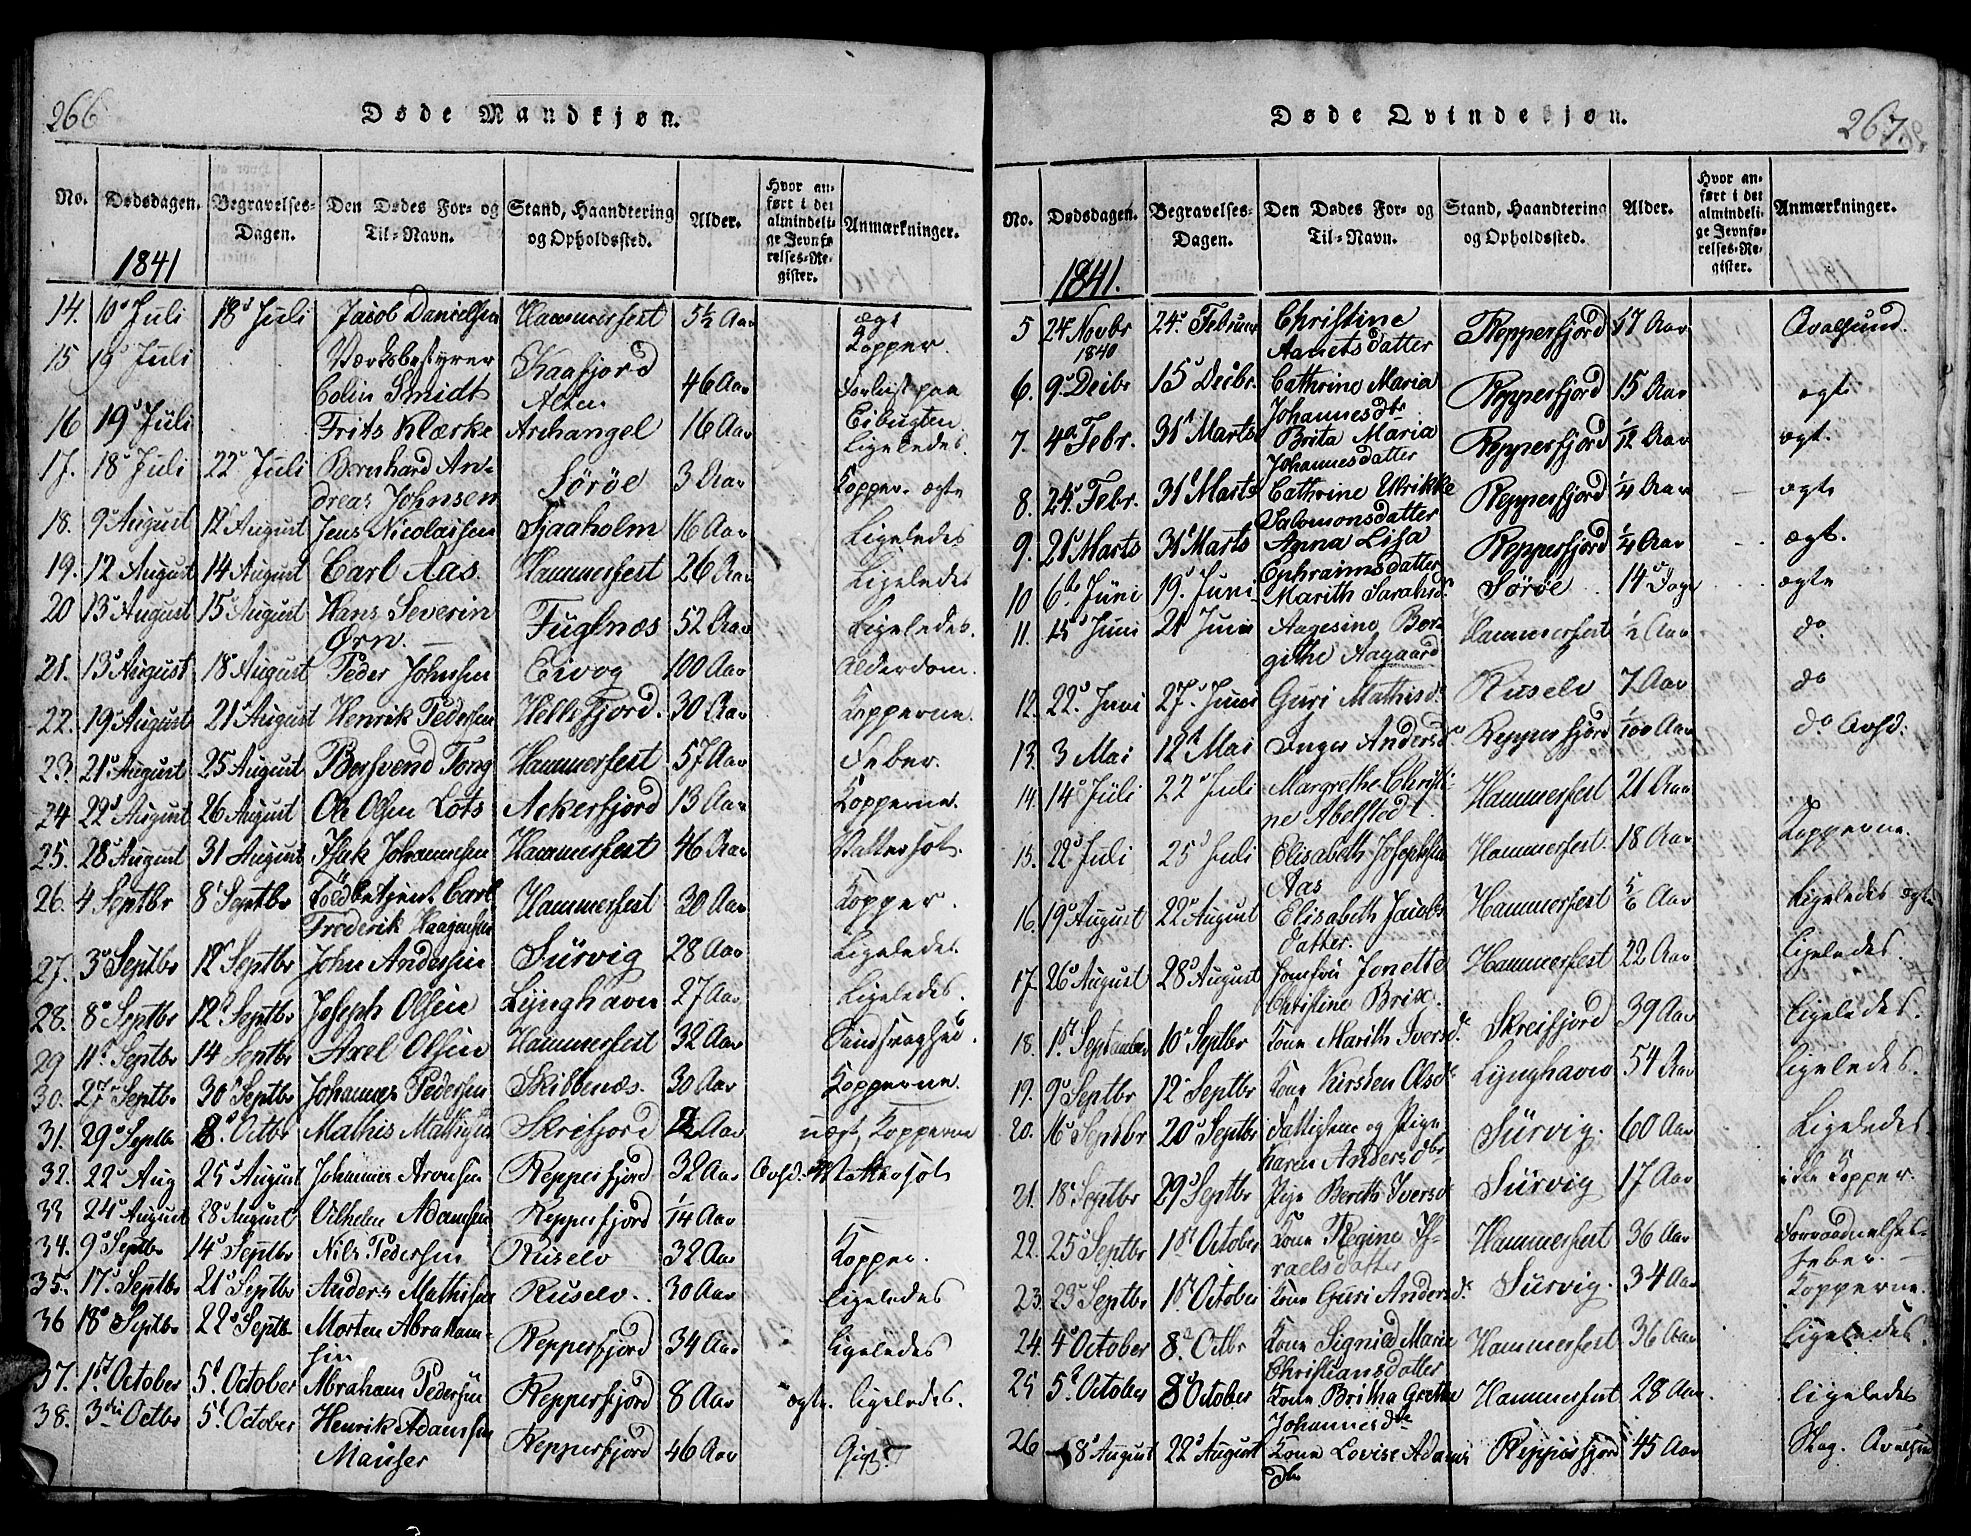 266
Døde Mandkjøn.
No. Dødsdagen. Begravelses-Dagen. Den Dødes For- og Til-Navn. Stand, Haandtering og Opholdssted. Alder. Hvor anført i det almindelige Jevnførelses-Register. Anmærkninger.
1841
14. 10d Juli 18d Juli Jacob Danielsen Hammerfest 5½ Aar ægt Kopper.
15 19d Juli Værksbestyrer Colin Smidt Kaafjord Alten 46 Aar
16 19d Juli Frits Klærke Archangel 16 Aar Ligeledes.
17. 18d Juli 22d Juli Bernhard Andreas Johnsen Sørøe 3 Aar Kopper. ægte
18. 9d August 12d August Jens Nicolaisen Sjaaholm 16 Aar Ligeledes
19. 12 August 14 August Carl Aas. Hammerfest 26 Aar Ligeledes
20 13d August 15d August Hans Severin Ørn. Fuglnæs 52 Aar Ligeledes.
21. 13d August 18d August Peder Johnsen Eivog 100 Aar Alderdom.
22. 19d August 21d August Henrik Pedersen Hellefjord. 30 Aar Kopperne.
23. 21d August 25 August Bersvend Tong Hammerfest 57 Aar Feber.
24 22d August 26 August Ole Olsen Lots Ackerfjord 13 Aar Kopperne.
25. 28d August 31 August Isak Johannesen Hammerfest 46 Aar Vattersot.
26. 4 Septbr 8d Septbr Toldbetjent Carl Frederik Haagensen Hammerfest 30 Aar Kopper.
27. 3d Septbr 12d Septbr John Andersen Survig 28 Aar Ligeledes
28. 8d Septbr 12d Septbr Joseph Olsen Lynghavn 27 Aar Ligeledes.
29 11d Septbr 14 Septbr Axel Olsen Hammerfest 32 Aar Sindsvaghed.
30. 27d Septbr 30d Septbr Johannes Pedersen Skibbenæs. 30 Aar Kopperne.
31. 29d Septb. 8d Octbr Mathis Mathisen Skreifjord 2 Aar Kopperne
32. 22d Aug 25d August Johannes Arvesen Repperfjord 32 Aar Qvsd. Vattersot
33 24d August 28d August Vilhelm Adamsen Repperfjord 1/4 Aar —
34. 9d Septbr 14d Septbr Nils Pedersen Ruselv 32 Aar Kopper.
35. 17d Septbr 21d Septbr Anders Mathisen Ruselv. 30 Aar Ligeledes
36 18d Septbr 22d Septb Morten Abrahamsen Repperfjord 34 Aar Ligeledes
37. 1st October 5d October Abraham Pedersen Repperfjord 8 Aar ægte. Ligeledes.
38. 3di Octbr 5d October Henrik Adamsen Mauser Repperfjord 46 Aar Gigt.
267.
Døde Qvindekjøn.
No. Dødsdagen. Begravelses-Dagen. Den Dødes For- og Til-Navn. Stand, Haandtering og Opholdssted. Alder. Hvor anført i det almindelige Jevnførelses-Register. Anmærkninger.
1841.
5 24d Novbr 1840 24d Februar Christine Aanetsdatter Repperfjord 17 Aar Qvalsund.
6. 9d Decbr 15d Decbr. Cathrine Maria Johannesdtr Repperfjord 15 Aar ægte
7. 4d Febr. 31d Marts Brita Maria Johannesdatter Repperfjord 1/12 Aar ægt.
8. 24d Febr. 31d Marts Cathrine Ulrikke Salomonsdatter Repperfjord 1/4 Aar ægte
9. 21d Marts 31d Marts Anna Lisa Ephraimsdatter Repperfjord 1/4 Aar ægt.
10 6te Juni 19d Juni Marith Sarahsdr Sørøe 14 Dage ægte
11. 15d Juni 21 Juni Aagesine Bergithe Aagaard Hammerfest ½ Aar do
12. 22d Juni 27d Juni Guri Mathisdr Ruselv 7 Aar do
13. 3 Mai 12d Mai Inger Andersdr Repperfjord 1/100 Aar do Qvsd.
14. 14d Juli 22d Juli Margrethe Christine Abelsted Hammerfest 21 Aar Kopperne.
15. 22d Juli 25d Juli Elisabeth Josephsen Aas Hammerfest 18 Aar
16. 19d August 22d August Elisabeth Jacobsdatter. Hammerfest 5/6 Aar Ligeledes ægte
17. 26d August 28d August Jomfru Jonette Christine Brix. Hammerfest 22 Aar Ligeledes.
18. 1st September 10d Septbr Kone Marith Iversdr Skreifjord 39 Aar Ligeledes.
19. 9d Septbr 12d Septbr Kone Kirsten Olsdr Lynghavn 54 Aar Ligeledes.
20. 16d Septbr 20d Septbr Fattiglem og Pige Karen Andersdtr Survig. 60 Aar Ligeledes.
21. 18d Septbr 29d Septbr Pige Bereth Iversdr Survig 17 Aar ikke Kopper.
22. 25d Septbr 1st October Kone Regine Israelsdatter Hammerfest 36 Aar Forraadnelsesfeber.
23. 23d Septbr 1st October Kone Guri Andersdr Survig. 34 Aar Kopperne.
24. 4d October 8d Octbr Kone Signed Marie Christiansdatter Hammerfest 36 Aar Ligeledes.
25 5d October 8d October Kone Britha Grethe Johannesdtr Hammerfest 28 Aar. Ligeledes
26 8d August 22d August Kone Lovise Adamsdtr Repperfjord 45 Aar Slag.